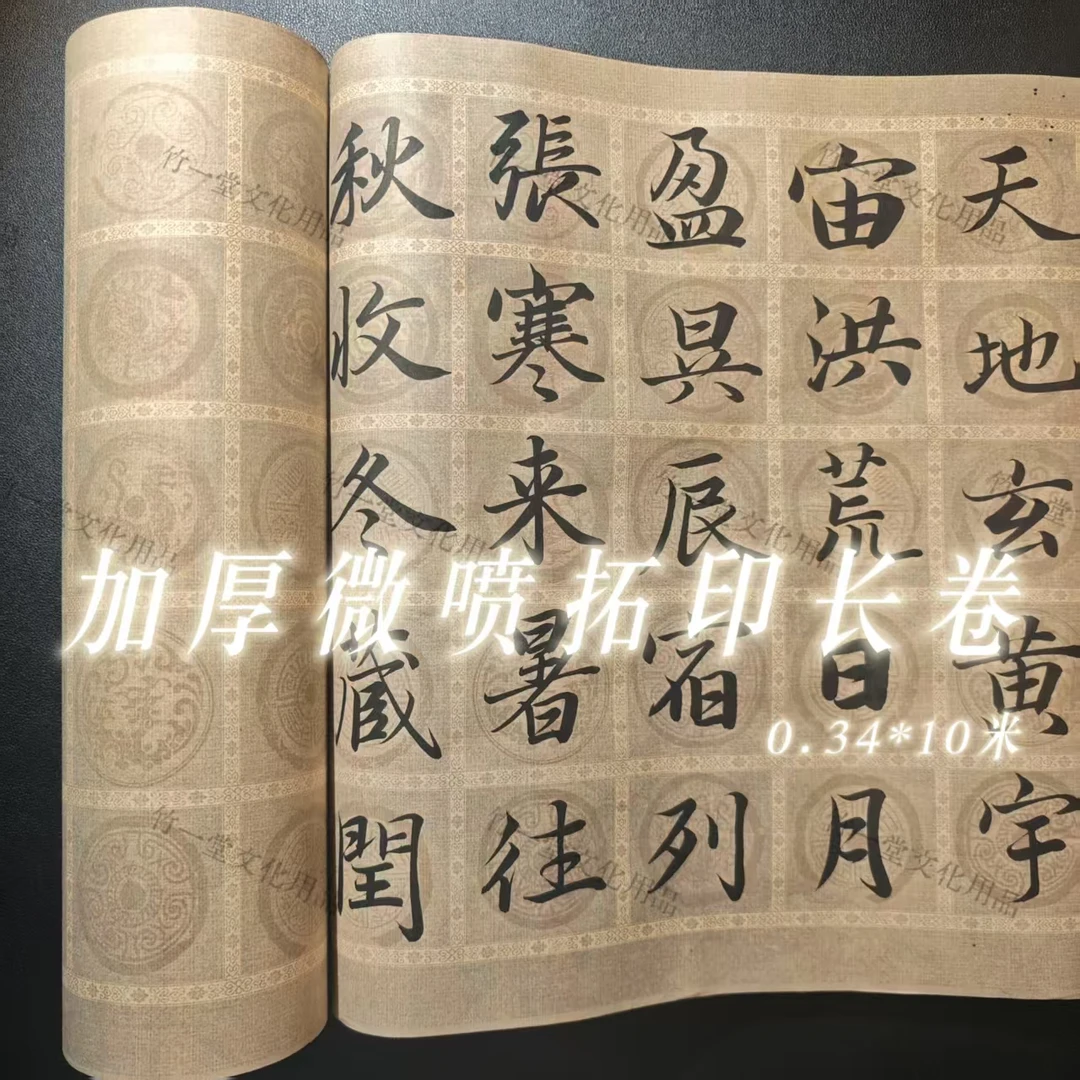 天地玄黄宇
宙洪荒日月
盈昃辰宿列
張寒来暑往
秋收冬蔵閏
加厚微喷拓印长卷
0.34*10米
竹一堂文化用品
竹一堂文化用品